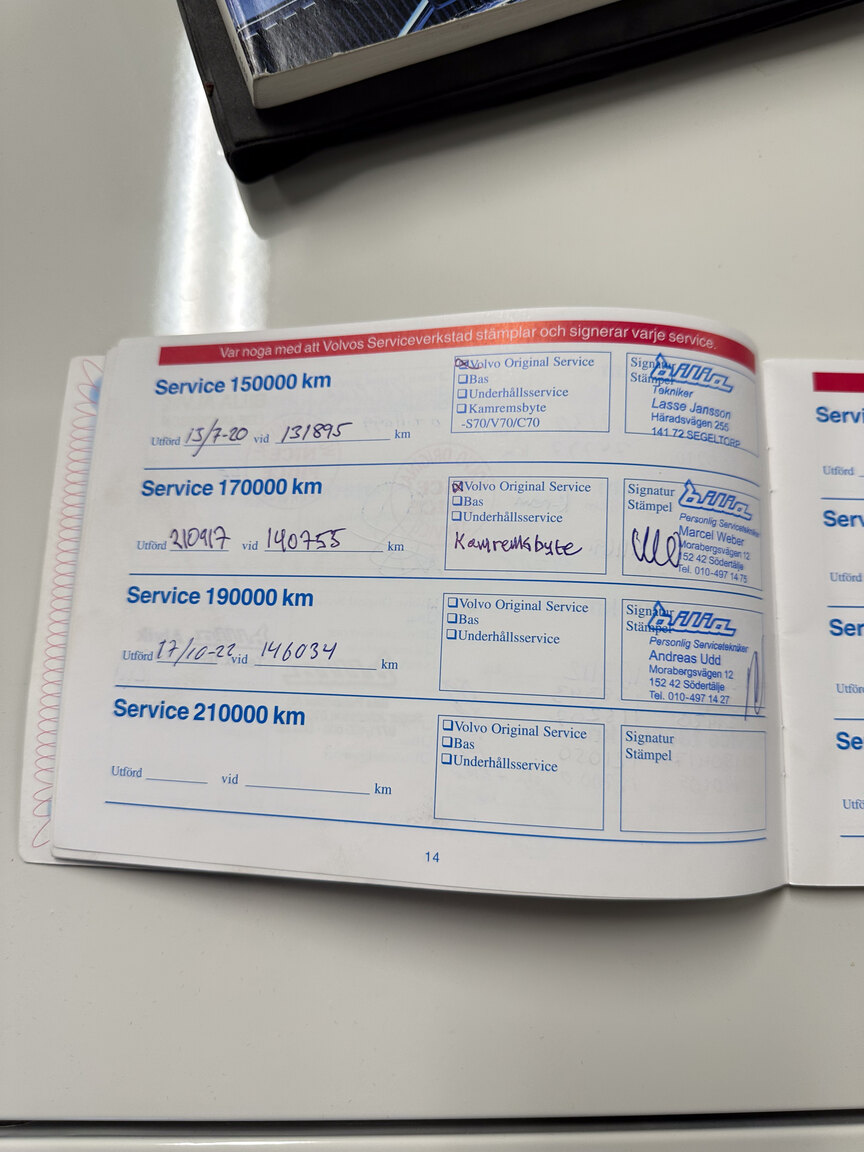 Var noga med att Volvos Serviceverkstad stämplar och signerar varje service.
Service 150000 km
Utförd 13/7-20 vid 131895 km
Volvo Original Service
Bas
Underhållsservice
Kamremsbyte
-S70/V70/C70
Signatur
Stämpel
bilia
Tekniker
Lasse Jansson
Häradsvägen 255
141 72 SEGELTORP
Service 170000 km
Utförd 210917 vid 140755 km
Volvo Original Service
Bas
Underhållsservice
Kamremsbyte
Signatur
Stämpel
bilia
Personlig Servicetekniker
Marcel Weber
Morabergsvägen 12
152 42 Södertälje
Tel. 010-497 14 75
Service 190000 km
Utförd 17/10-22 vid 146034 km
Volvo Original Service
Bas
Underhållsservice
Signatur
Stämpel
bilia
Personlig Servicetekniker
Andreas Udd
Morabergsvägen 12
152 42 Södertälje
Tel. 010-497 14 27
Service 210000 km
Utförd vid km
Volvo Original Service
Bas
Underhållsservice
Signatur
Stämpel
14
Servi
Utförd
Serv
Utförd
Ser
Utför
Se
Utfö